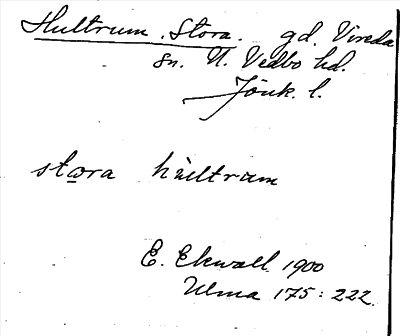 Hultrum, Stora. gd. Vireda
sn. N. Vedbo hd.
Jönk. l.
stora hùltrum
E. Ekwall 1900
Ulma 175: 222.